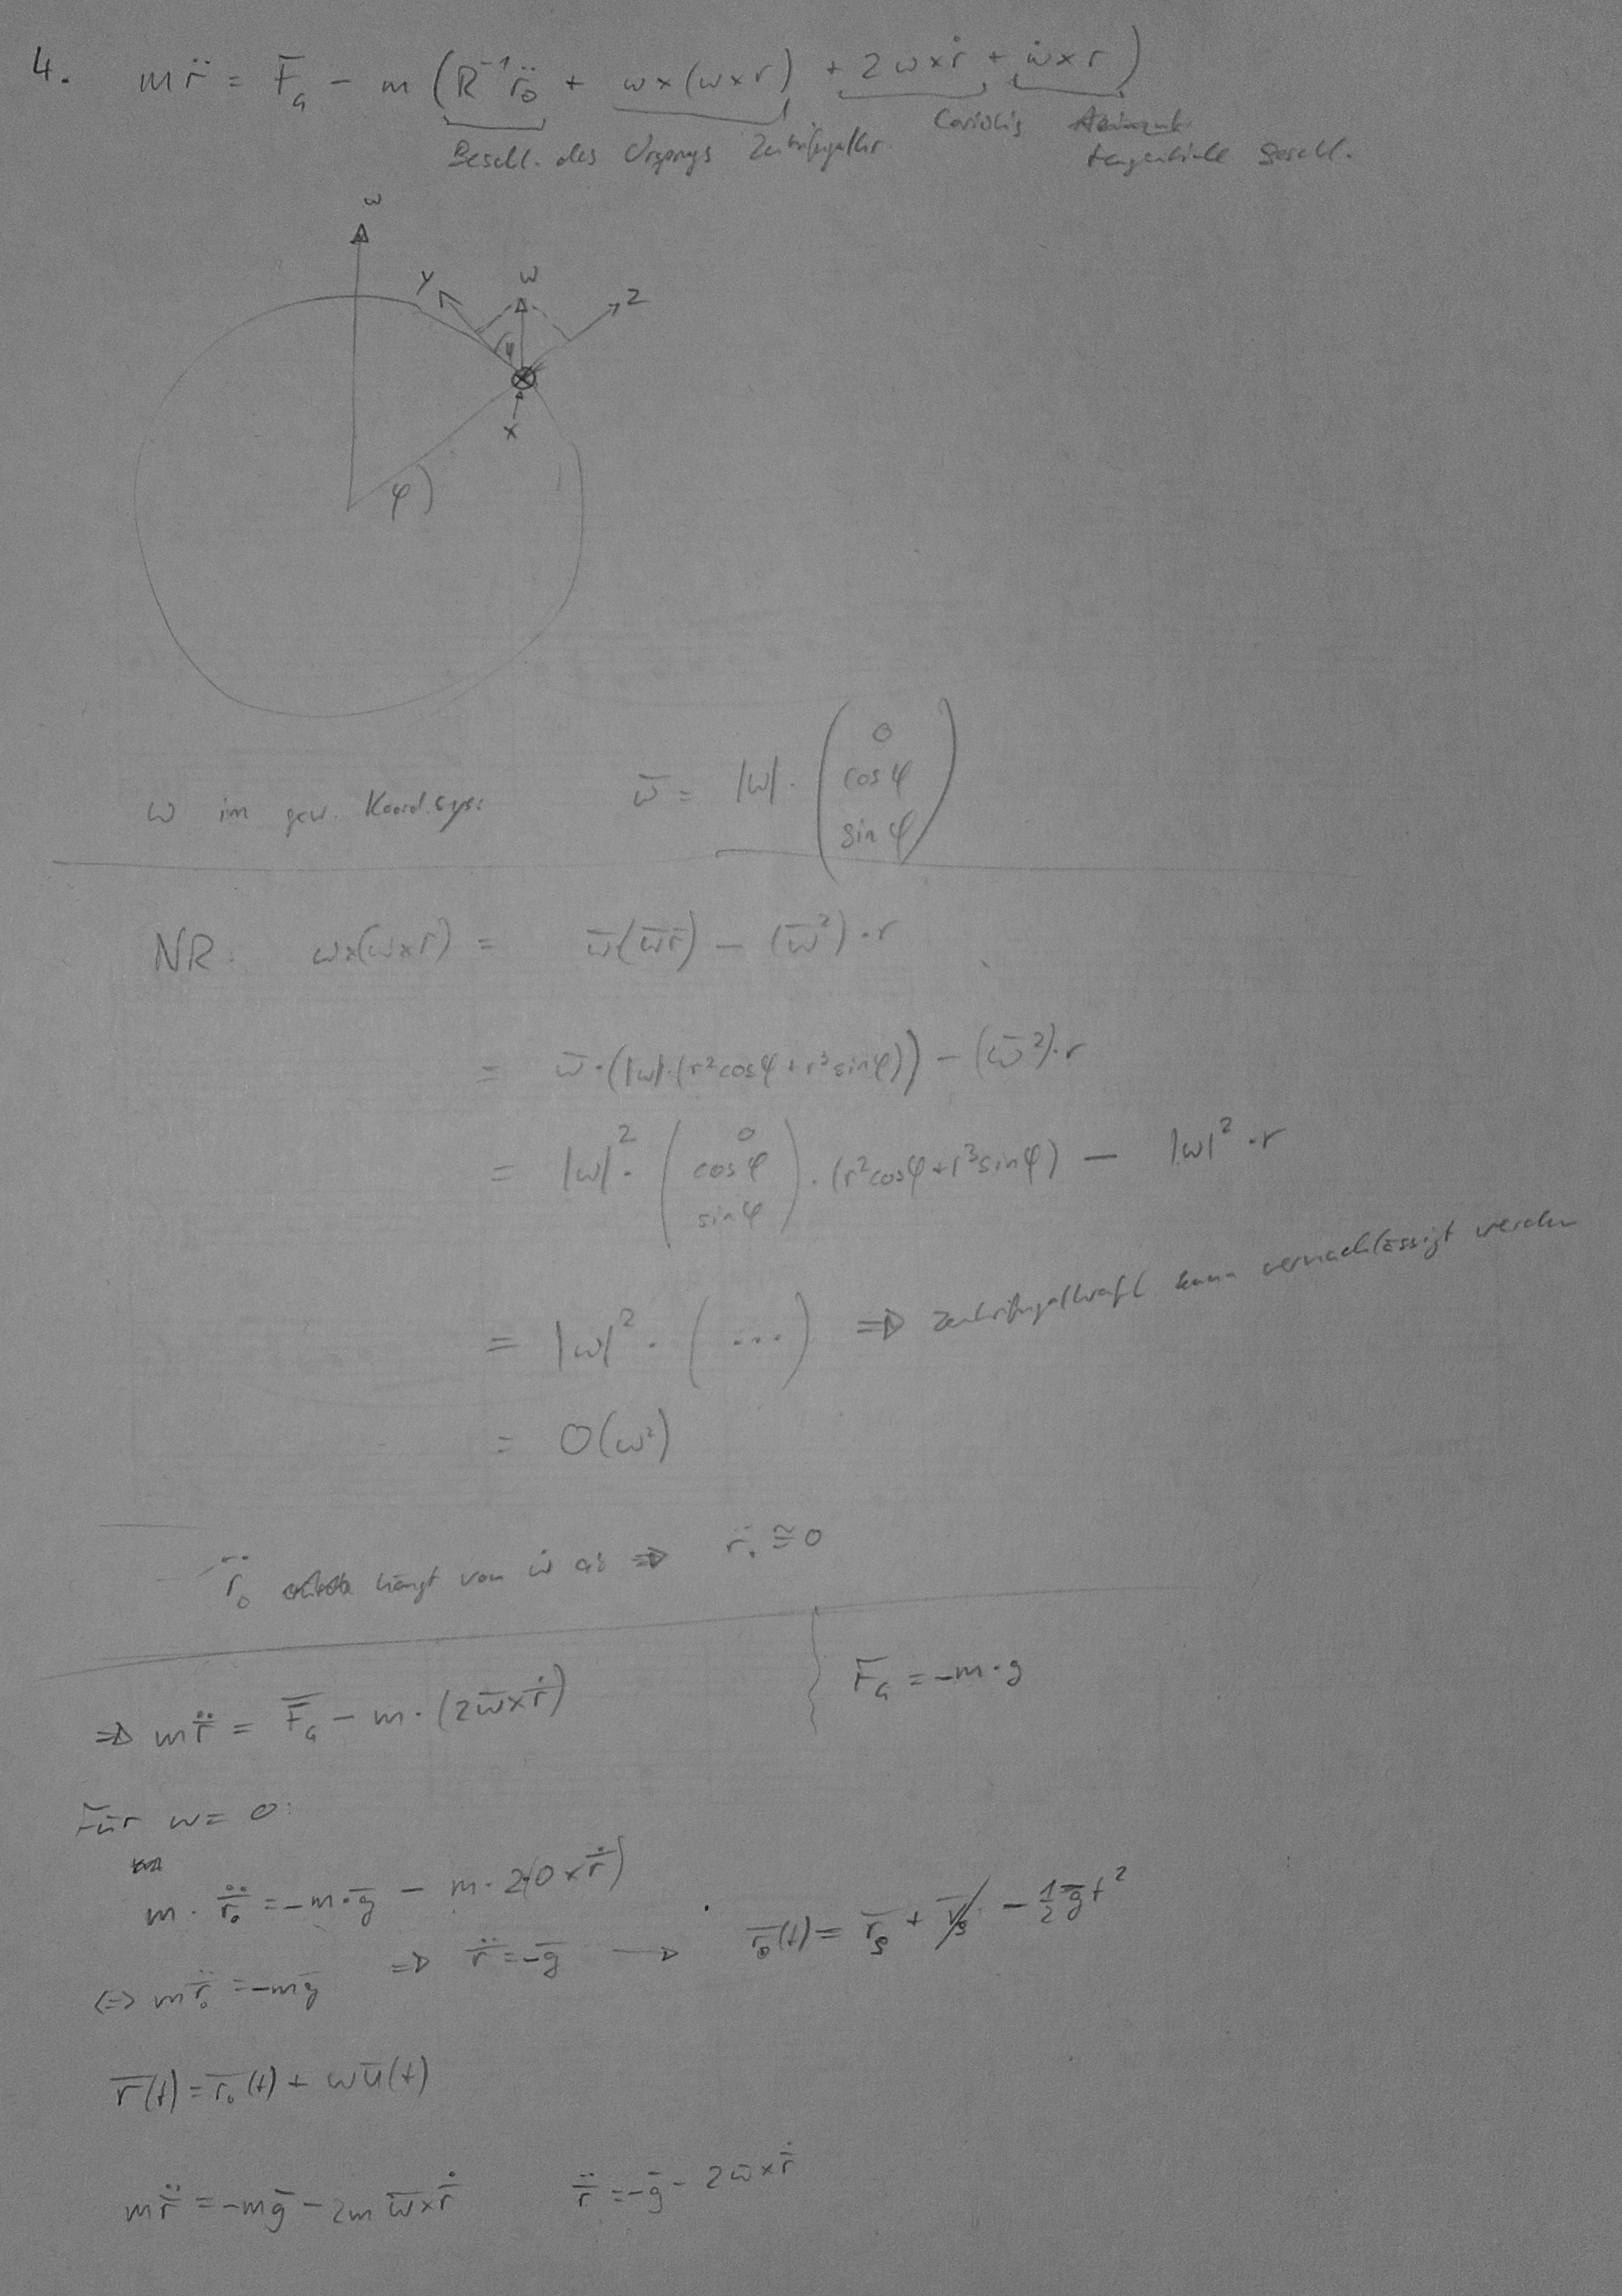 4. m r̈ = F̄_a − m (R⁻¹ r̈₀ + ω×(ω×r) + 2ω×ṙ + ω̇×r)
Beschl. des Ursprungs Zentrifugalkr. Coriolis
tangentiale Beschl.
ω
y ω z
φ
x
φ
ω im gew. Koord.sys: ω̄ = |ω| · (0 cosφ sinφ)
NR: ω×(ω×r) = ω̄·(ω̄r̄) − (ω̄²)·r
= ω̄·(|ω|·(r²cosφ + r³sinφ)) − (ω̄²)·r
= |ω|² · (0 cosφ sinφ) · (r²cosφ + r³sinφ) − |ω|²·r
= |ω|² · (...) ⇒ Zentrifugalkraft kann vernachlässigt werden
= O(ω²)
r̈₀ hängt von ω̇ ab ⇒ r̈₀ ≅ 0
⇒ m r̈ = F̄_a − m·(2ω̄×ṙ) F̄_a = −m·g
Für ω = 0:
m · r̈₀ = −m·ḡ − m·2(0×ṙ)
⇔ m r̈₀ = −mḡ ⇒ r̈ = −ḡ → r̄₀(t) = r̄₀ + v̄₀ − ½ḡt²
r̄(t) = r̄₀(t) + ωū(t)
m r̈ = −mḡ − 2m ω̄×ṙ r̈ = −ḡ − 2ω̄×ṙ